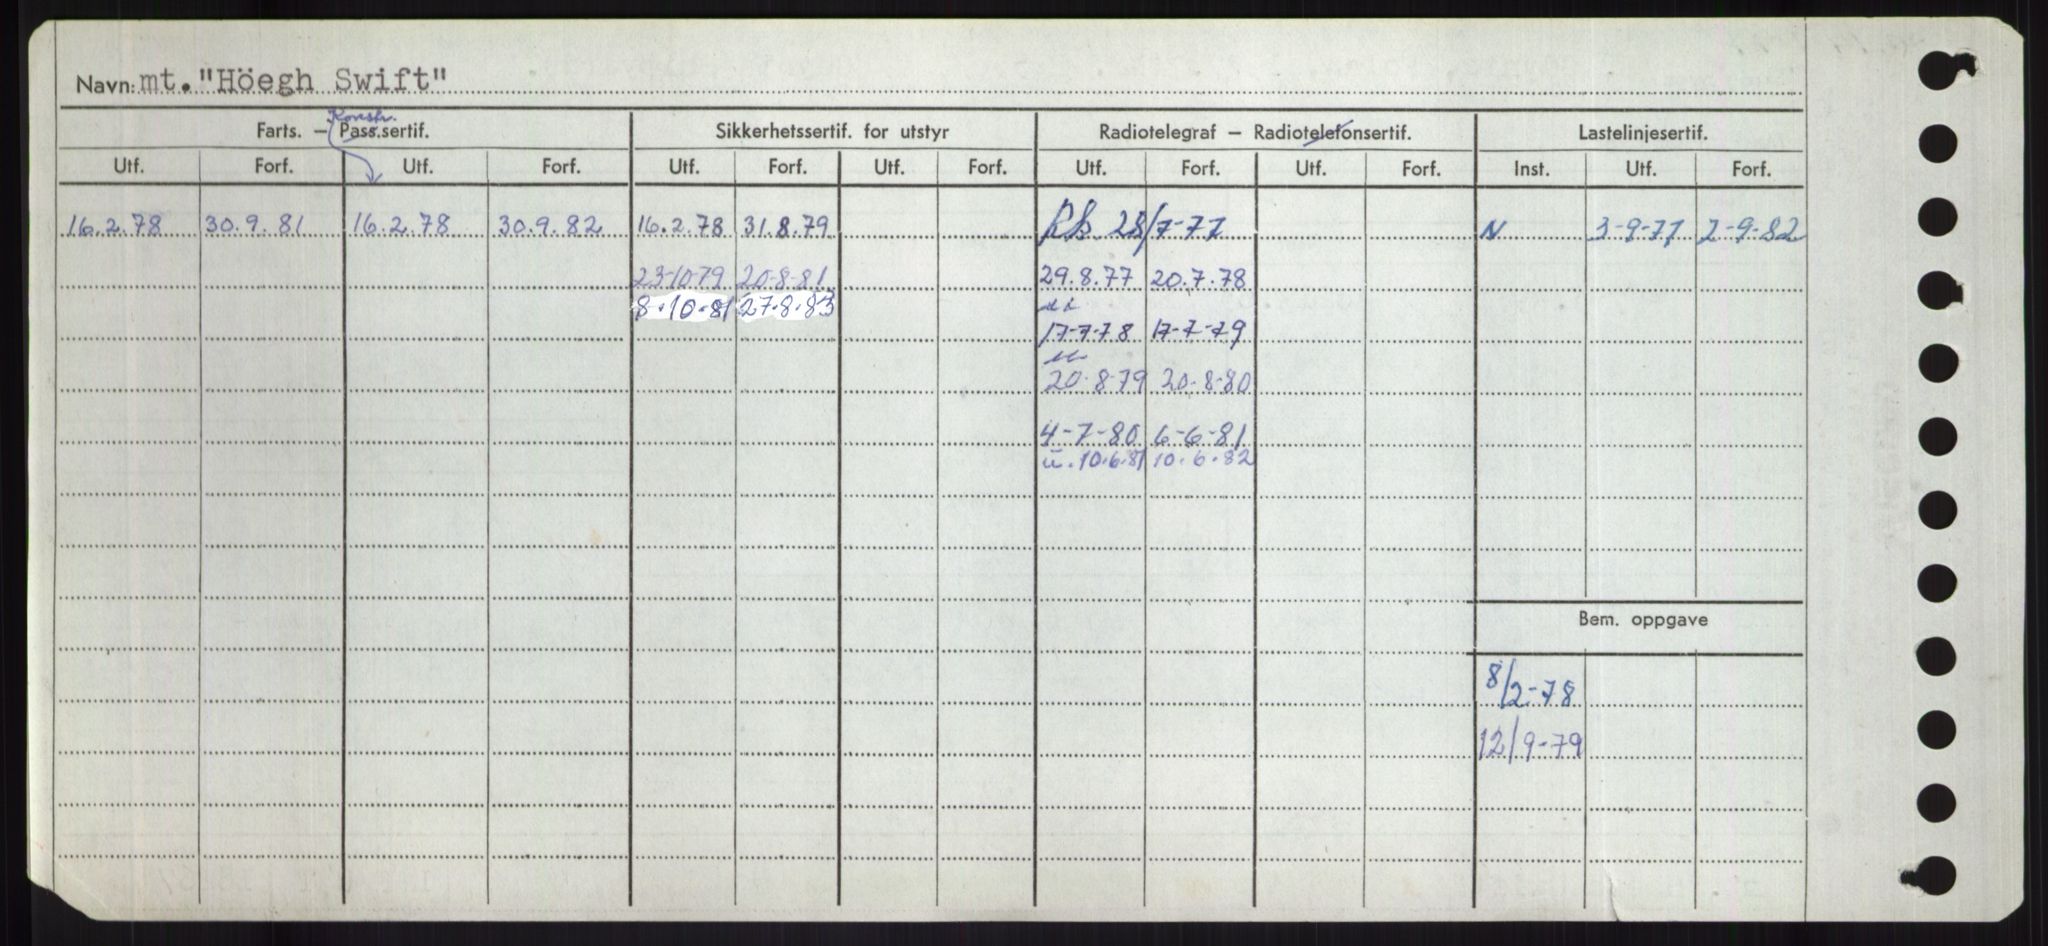 Navn: mt. "Höegh Swift"
Konstr.
Farts. — Pass.sertif. Sikkerhetssertif. for utstyr Radiotelegraf — Radiotelefonsertif. Lastelinjesertif.
Utf. Forf. Utf. Forf. Utf. Forf. Utf. Forf. Utf. Forf. Utf. Forf. Inst. Utf. Forf.
16.2.78 30.9.81 16.2.78 30.9.82 16.2.78 31.8.79 28/7-77 N 3-9-77 2-9-82
23-10-79 20-8-81 29.8.77 20.7.78
8.10.81 27.8.83
17-7-78 17-7-79
20.8.79 20.8.80
4-7-80 6-6-81
u. 10.6.81 10.6.82
Bem. oppgave
8/2-78
12/9-79